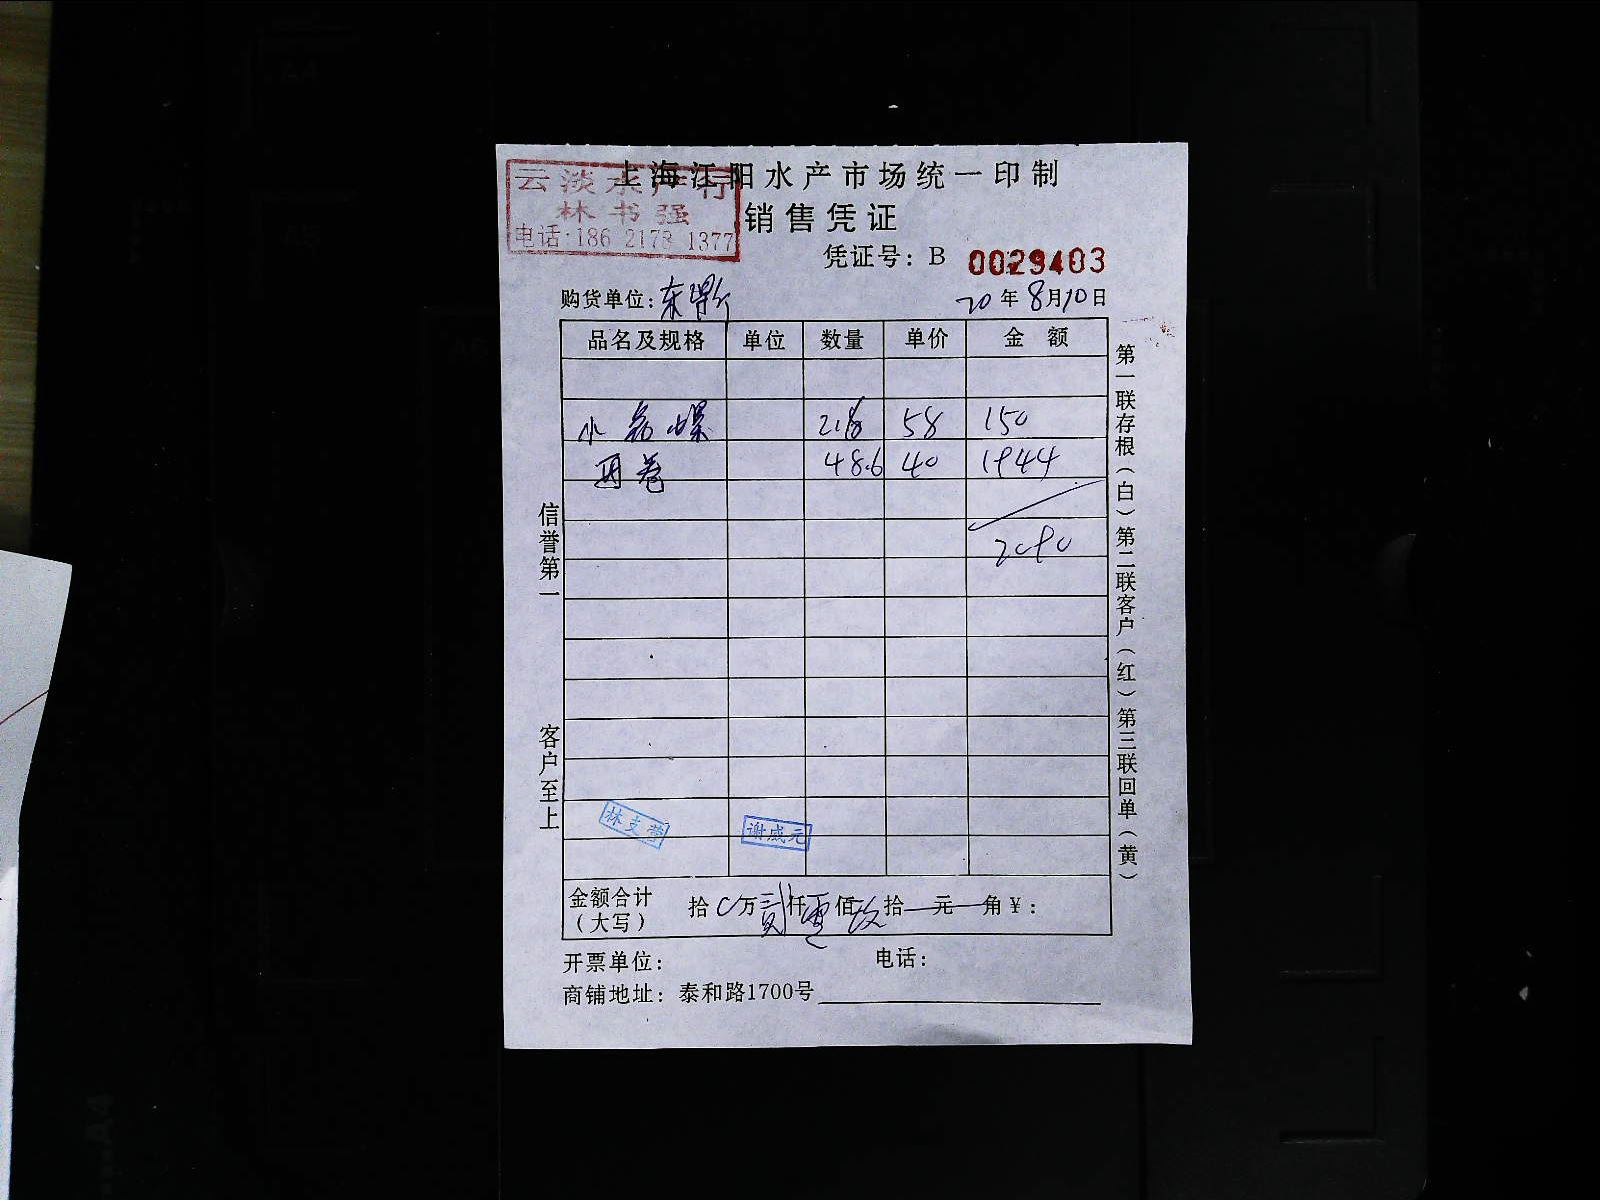 上海江阳水产市场统一印制
云淡水产行
林书强
电话:186 2178 1377
销售凭证
凭证号: B 0029403
购货单位:东
20年8月10日
品名及规格 单位 数量 单价 金额
小 螺 58 150
48.6 40 1944
信誉第一
客户至上
第一联存根(白)第二联客户(红)第三联回单(黄)
林支营
谢成元
金额合计(大写) 拾 万贰仟零佰玖拾 元 角¥:
开票单位: 电话:
商铺地址: 泰和路1700号